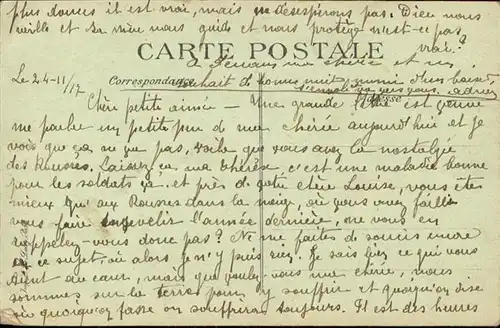 plus douces il est vrai, mais ne désespérons pas. Dieu nous
veille et sa mère nous guide et nous protège n'est-ce pas
vrai?
CARTE POSTALE
à demain ma chérie et un
Le 24-11/17 Correspondance souhait de bonne nuit, d'un baiser
vers vous,
Adresse
Chère petite aimée - Une grande est venue
me parler un petit peu de ma chérie aujourd'hui et je
vois que ça ne va pas, voilà que vous avez la nostalgie
des Rousses. Laissez ça ma chérie, c'est une maladie bonne
pour les soldats ça et près de votre chère Louise, vous êtes
mieux qu'aux Rousses dans la neige, où vous avez failli
vous faire ensevelir l'année dernière, ne vous en
rappelez-vous donc pas? Ne me faites de soucis encore
à ce sujet, où alors je n'y puis rien. Je sais bien ce qui vous
tient au cœur, mais que voulez-vous ma chérie, nous
sommes sur la terre pour y souffrir et quoiqu'on dise
ou quoiqu'on fasse on souffrira toujours. Il est des heures